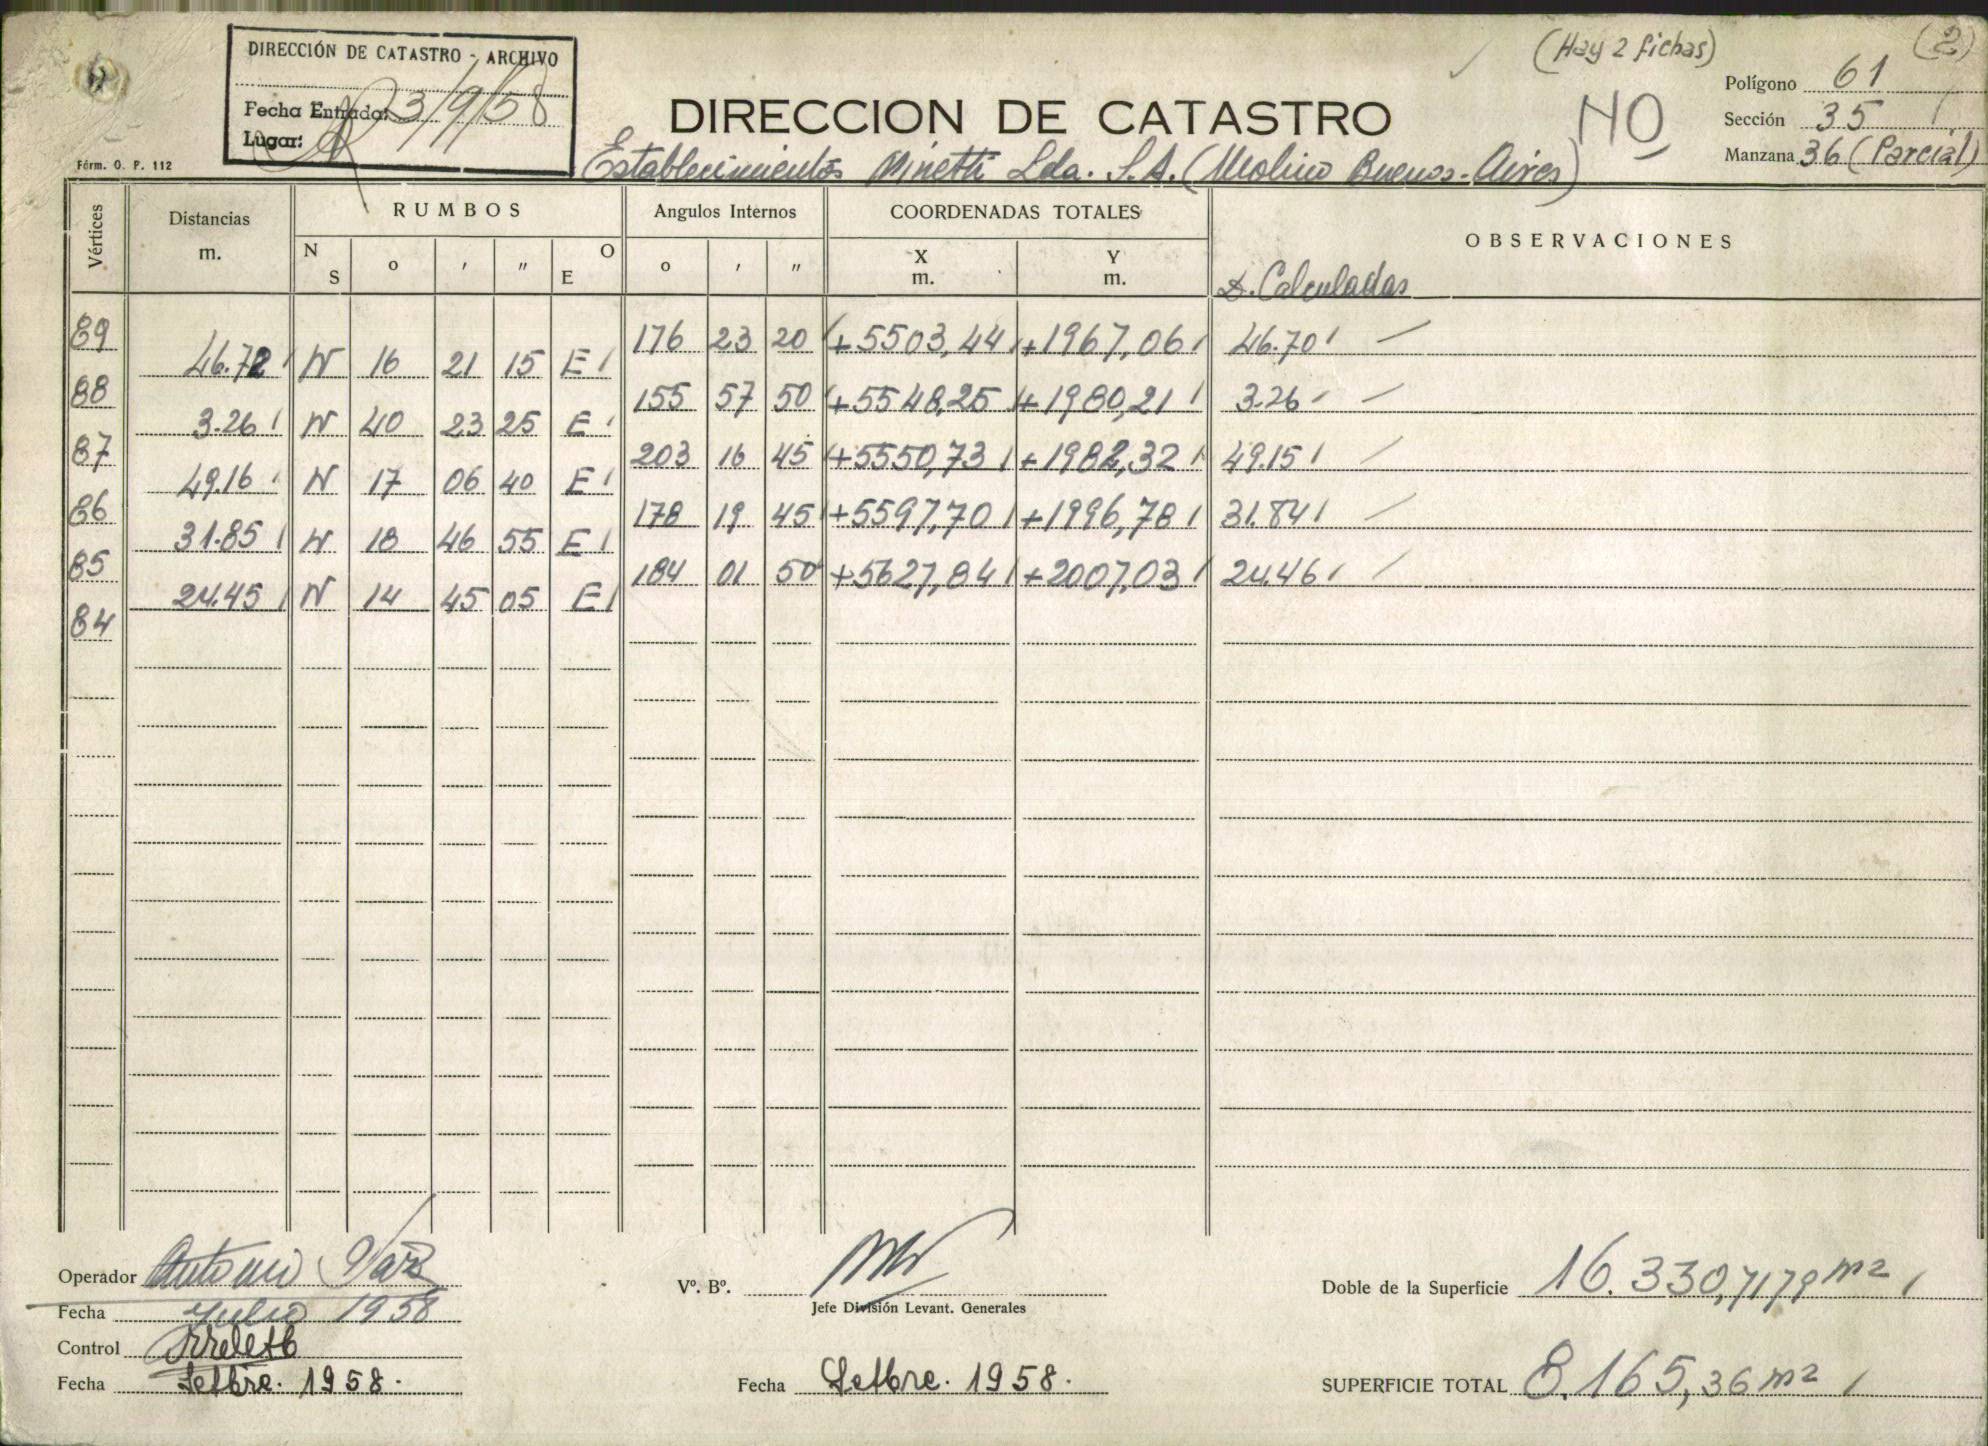 (Hay 2 fichas)
(2)
DIRECCIÓN DE CATASTRO - ARCHIVO
Fecha Entrada: 23/9/58
Lugar:
Fórm. O. P. 112
DIRECCION DE CATASTRO
NO
Polígono 61
Sección 35
Manzana 36 (Parcial)
Establecimientos Minetti Lda. S.A. (Molino Buenos-Aires)
Vértices Distancias m. RUMBOS Angulos Internos COORDENADAS TOTALES OBSERVACIONES
N S o ' " O E o ' " X m. Y m. D. Calculadas
89 176 23 20 +5503,44 +1967,06 46.70
46.72 N 16 21 15 E
88 155 57 50 +5548,25 +1980,21 3.26
3.26 N 40 23 25 E
87 203 16 45 +5550,73 +1982,32 49.15
49.16 N 17 06 40 E
86 178 19 45 +5597,70 +1996,78 31.84
31.85 N 18 46 55 E
85 184 01 50 +5627,84 +2007,03 24.46
24.45 N 14 45 05 E
84
Operador Antonio
Fecha Julio 1958
Control
Fecha Setbre. 1958.
Vº. Bº.
Jefe División Levant. Generales
Fecha Setbre. 1958.
Doble de la Superficie 16.330,7179 m2
SUPERFICIE TOTAL 8.165,36 m2